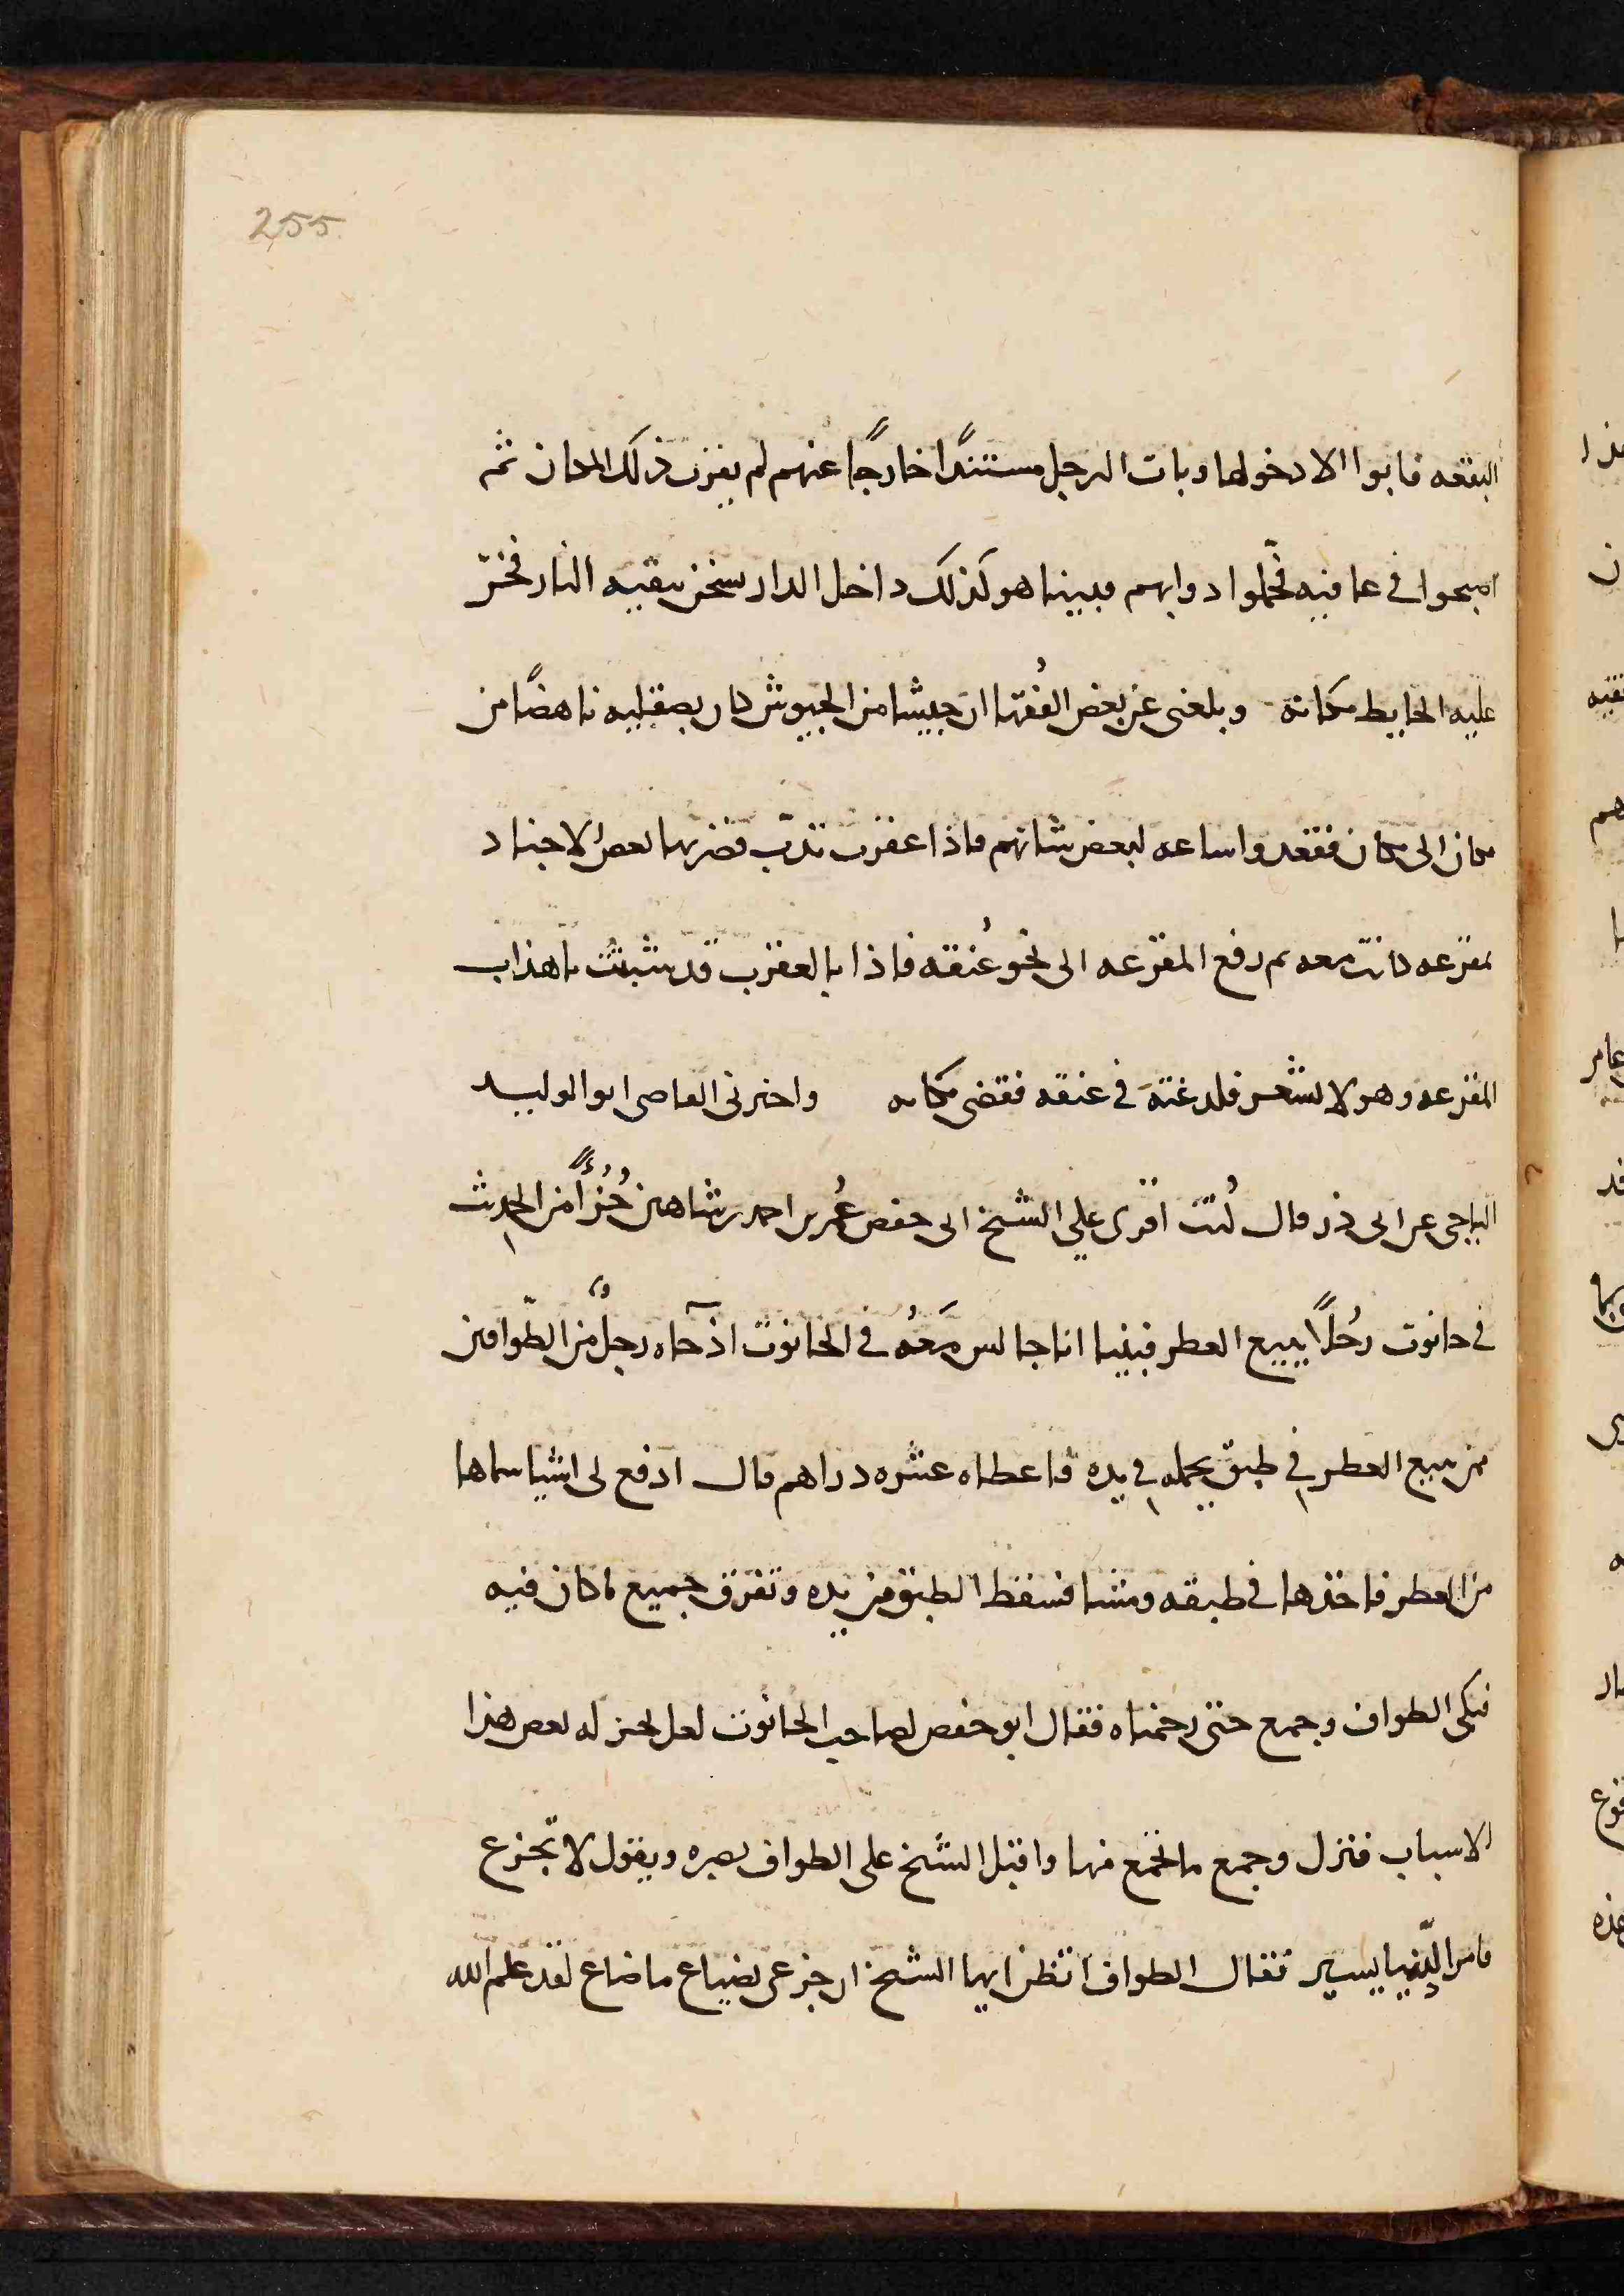 255
البقعه فابوا الا دخولها وبات الرجل مستندًا خارجًا عنهم لم يقرب ذلك المكان ثم
اصبحوا في عافيه فحمّلوا دوابهم فبينا هو كذلك داخل الدار سخن ببقيه النار فخرّ
عليه الحايط مكانه وبلغني عن بعض الفُقها ان جيشا من الجيوش كان بصقليه ناهضًا من
مكان الى مكان فقعدوا ساعه لبعض شانهم فاذا عقرب تدبّ فضربها بعض الاجناد
بمقرعه كانت معه ثم رفع المقرعه الى نحو عُنقه فاذا بالعقرب قد تشبثت باهداب
المقرعه وهو لا يشعر فلدغته في عنقه فقضى مكانه واخبرني القاضي ابو الوليد
الباجي عن ابي ذر قال كُنت اقرى علي الشيخ ابي حفص عُمر بن احمد بن شاهين جُزُءًا من الحديث
في حانوت رجُلًا يبيع العطر فبينا انا جالس مَعَهُ في الحانوت اذ جآه رجلٌ من الطّوافين
ممن يبيع العطر في طبق يحمله في يده فاعطاه عشره دراهم قال ادفع لى اشيا سماها
من العطر فاخذها في طبقه ومشا فسقط الطبق من يده وتفرق جميع ما كان فيه
فبكى الطواف وجمع حتى رحمناه فقال ابو حفص لصاحب الحانوت لعل تجبر له بعض هذا
الاسباب فنزل وجمع ما تجمع منها واقبل الشيخ على الطواف يصبره ويقول لا تجزع
فامر الدّنيا يسير فقال الطواف اتظن ايها الشيخ ان جزعى لضياع ما ضاع لقد علم الله